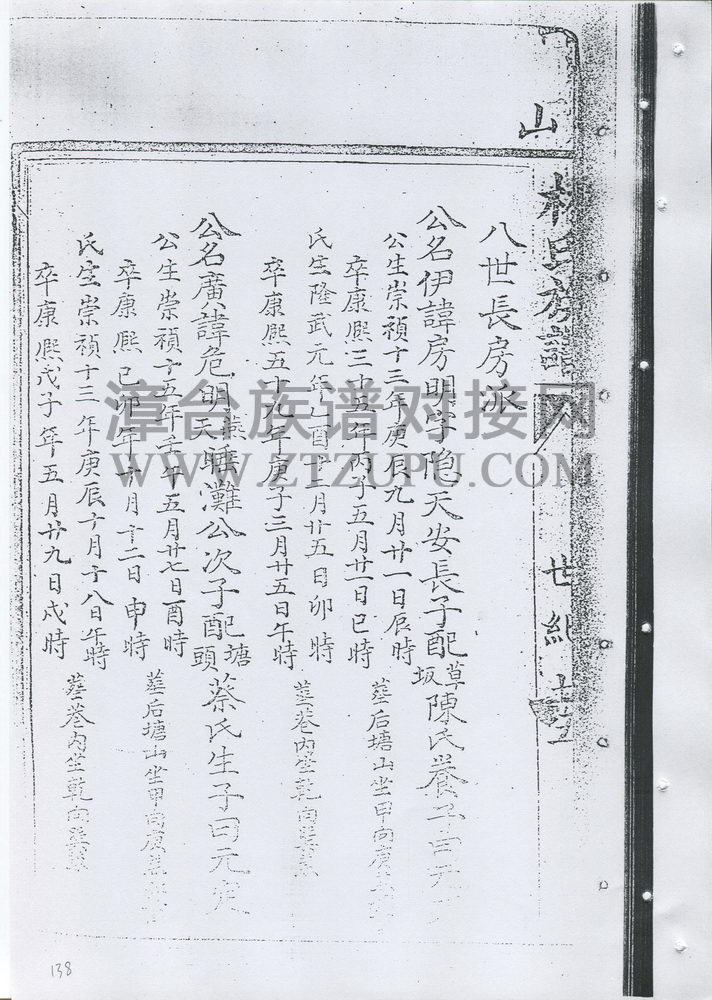 山
林氏族譜
世紀
八世長房派
公名伊諱房明字隐天安長子配草坂陳氏養子曰元
公生崇禎十三年庚辰九月廿一日辰時
卒康熙三十五年丙子五月廿一日巳時 葬后塘山坐甲向庚
氏生隆武元年乙酉十二月廿五日卯時
卒康熙五十九年庚子三月廿五日午時 葬巷內坐乾向巽
公名廣諱危明 天曠灘公次子配塘頭蔡氏生子曰元定
公生崇禎十五年壬午五月廿七日酉時
卒康熙己卯年十月十二日申時 葬后塘山坐甲向庚
氏生崇禎十三年庚辰十月十八日午時
卒康熙戊子年五月廿九日戍時 葬巷內坐乾向巽
漳台族谱对接网
WWW.ZTZUPU.COM
138